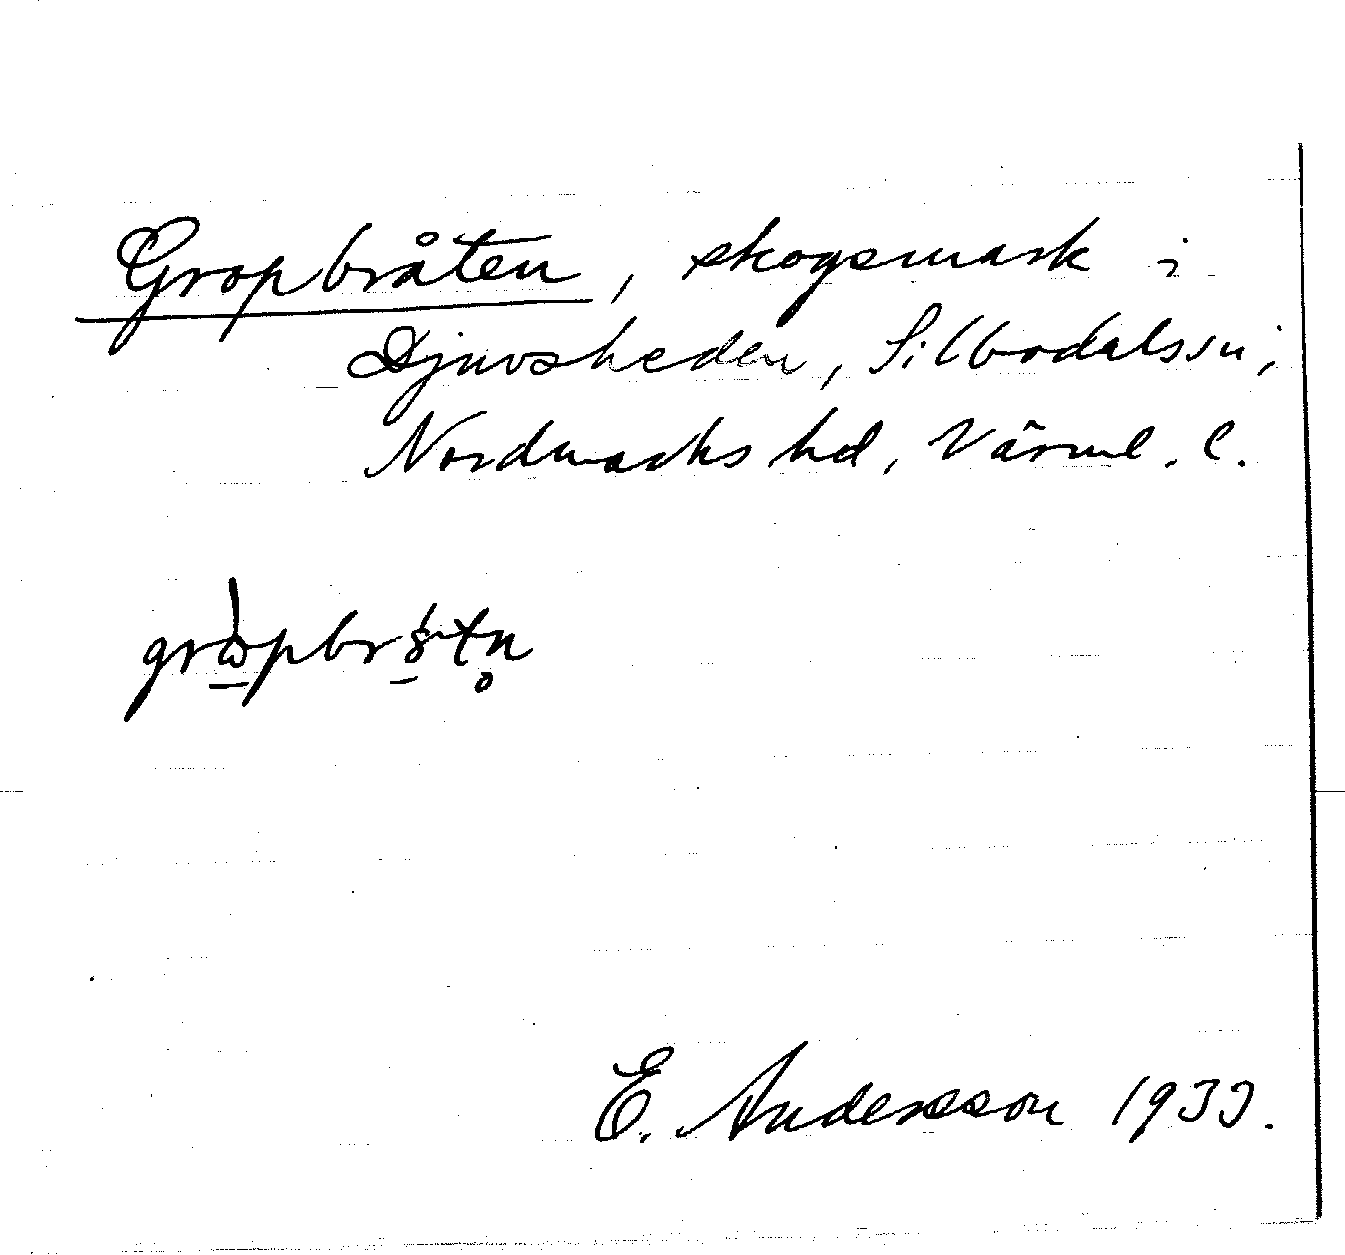 Gropbråten, skogsmark i
Djuvsheden, Silbodalssn,
Nordmarks hd, Värml. l.
E. Andersson 1933.